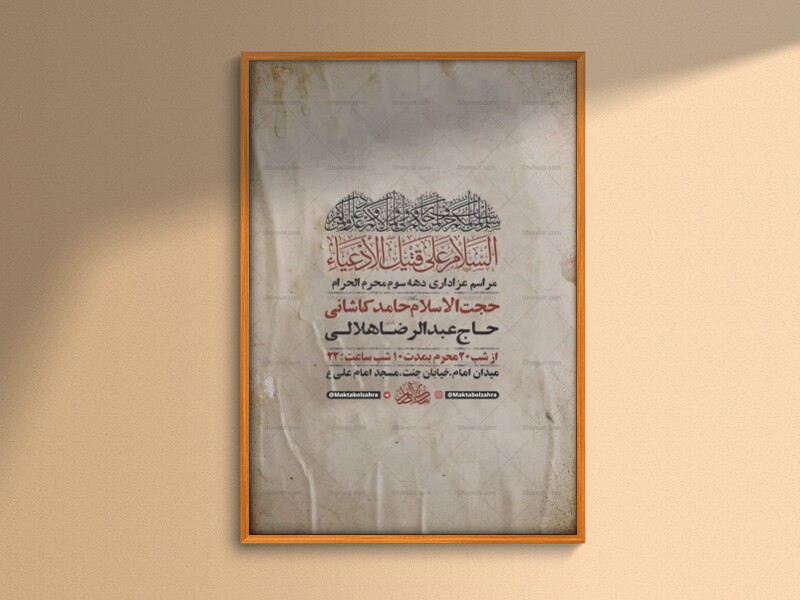 السلام علی قتیل الأدعیاء
مراسم عزاداری دهه سوم محرم الحرام
حجت الاسلام حامد کاشانی
حاج عبدالرضا هلالی
از شب ۲۰ محرم بمدت ۱۰ شب ساعت: ۲۲
میدان امام.خیابان جنت.مسجد امام علی ع
@Maktabolzahra @Maktabolzahra